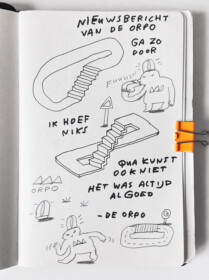 NIEUWSBERICHT
VAN DE ORPO
GA ZO
DOOR
FUUUU
IK HOEF
NIKS
ORPO
QUA KUNST
OOK NIET
HET WAS ALTIJD
AL GOED
- DE ORPO